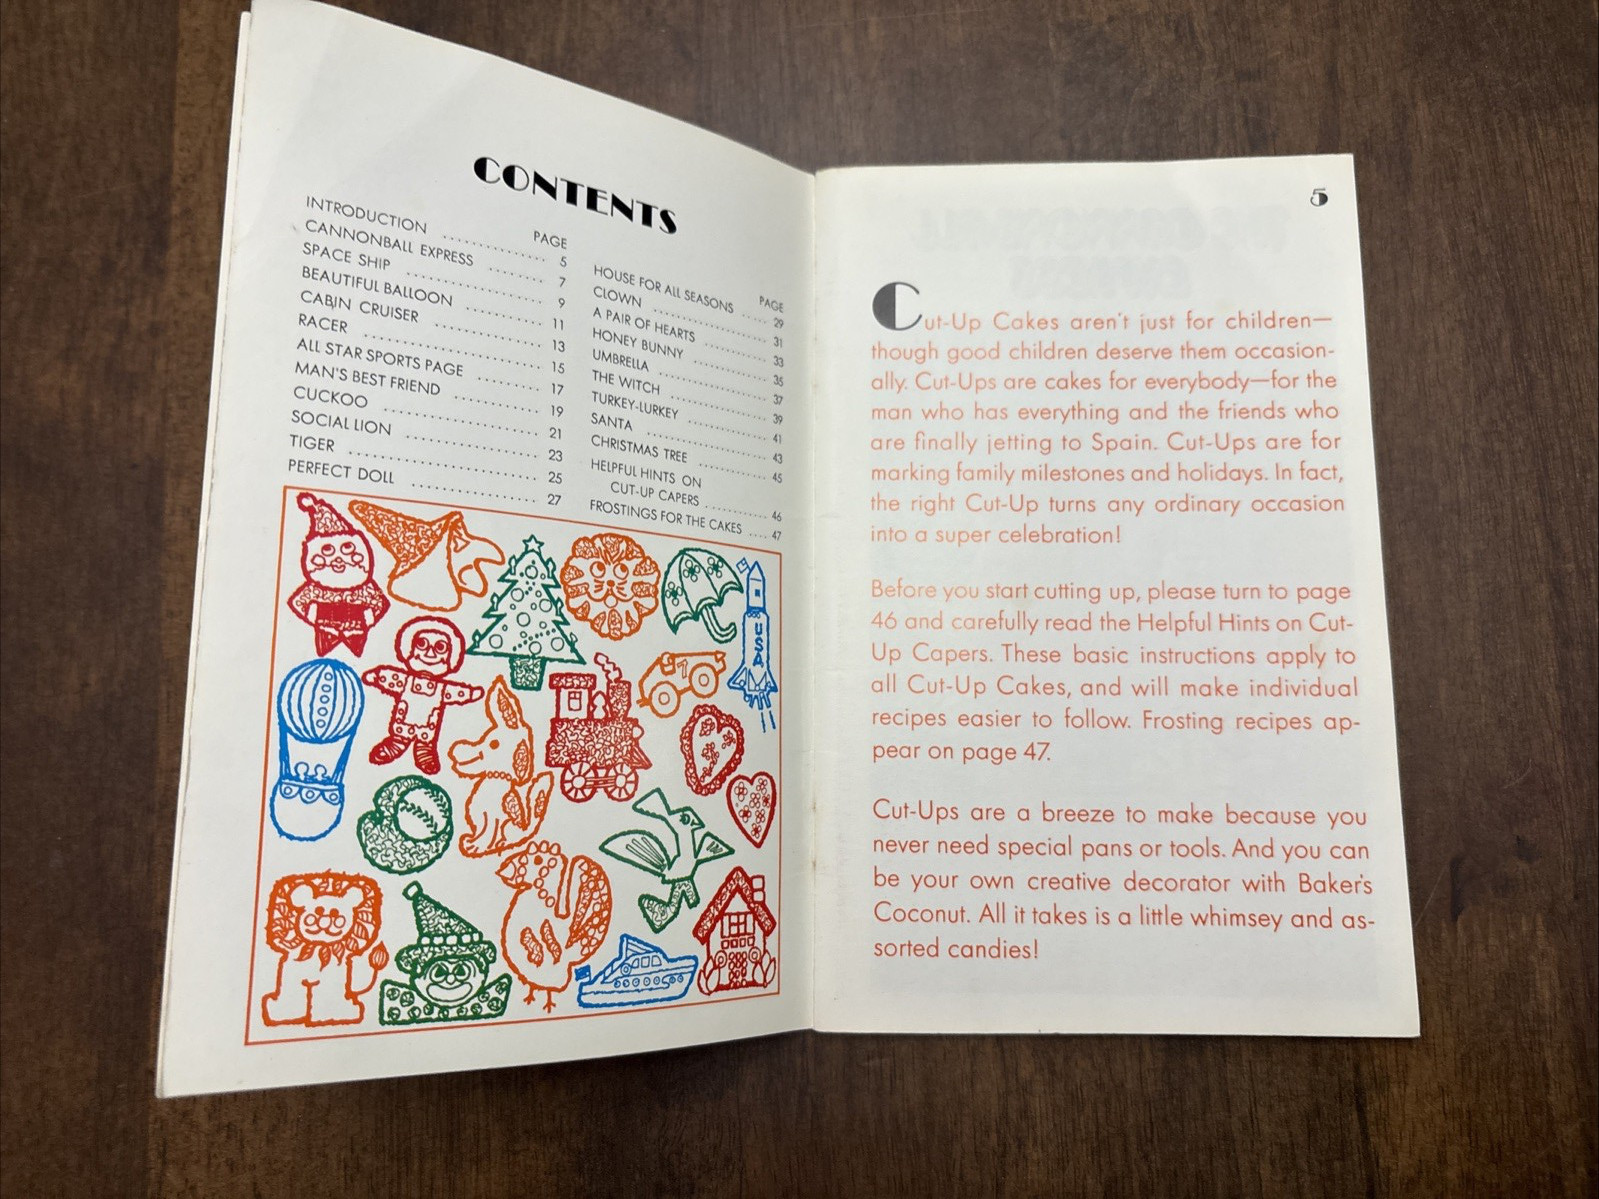 CONTENTS
PAGE
INTRODUCTION .................. 5
CANNONBALL EXPRESS ......... 7
SPACE SHIP .................. 9
BEAUTIFUL BALLOON ............ 11
CABIN CRUISER ............... 13
RACER ........................ 15
ALL STAR SPORTS PAGE ......... 17
MAN'S BEST FRIEND ............ 19
CUCKOO ..................... 21
SOCIAL LION .................. 23
TIGER ........................ 25
PERFECT DOLL ............... 27
PAGE
HOUSE FOR ALL SEASONS ..... 29
CLOWN ..................... 31
A PAIR OF HEARTS ............ 33
HONEY BUNNY ............... 35
UMBRELLA .................. 37
THE WITCH .................. 39
TURKEY-LURKEY ............... 41
SANTA ..................... 43
CHRISTMAS TREE ............ 45
HELPFUL HINTS ON
CUT-UP CAPERS ............ 46
FROSTINGS FOR THE CAKES .... 47
USA
1
5
Cut-Up Cakes aren't just for children—
though good children deserve them occasion-
ally. Cut-Ups are cakes for everybody—for the
man who has everything and the friends who
are finally jetting to Spain. Cut-Ups are for
marking family milestones and holidays. In fact,
the right Cut-Up turns any ordinary occasion
into a super celebration!
Before you start cutting up, please turn to page
46 and carefully read the Helpful Hints on Cut-
Up Capers. These basic instructions apply to
all Cut-Up Cakes, and will make individual
recipes easier to follow. Frosting recipes ap-
pear on page 47.
Cut-Ups are a breeze to make because you
never need special pans or tools. And you can
be your own creative decorator with Baker's
Coconut. All it takes is a little whimsey and as-
sorted candies!